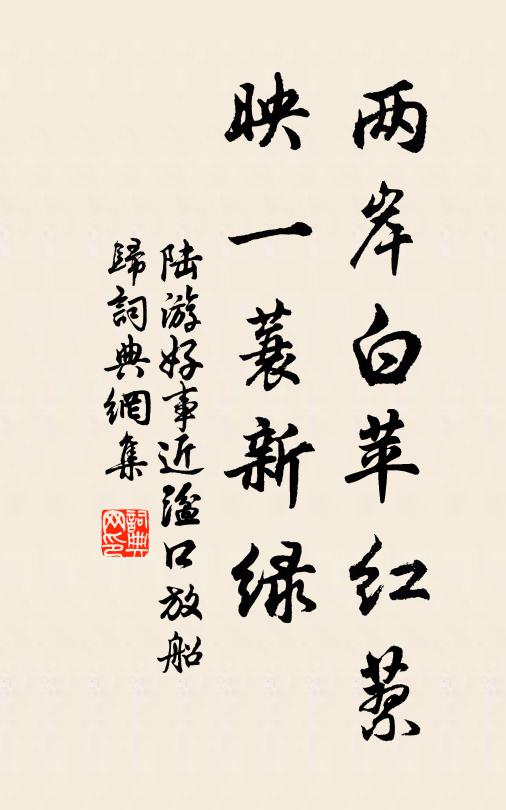 两岸白苹红蓼
映一蓑新绿
陆游好事近湓口放船
歸詞典網集
詞典网印